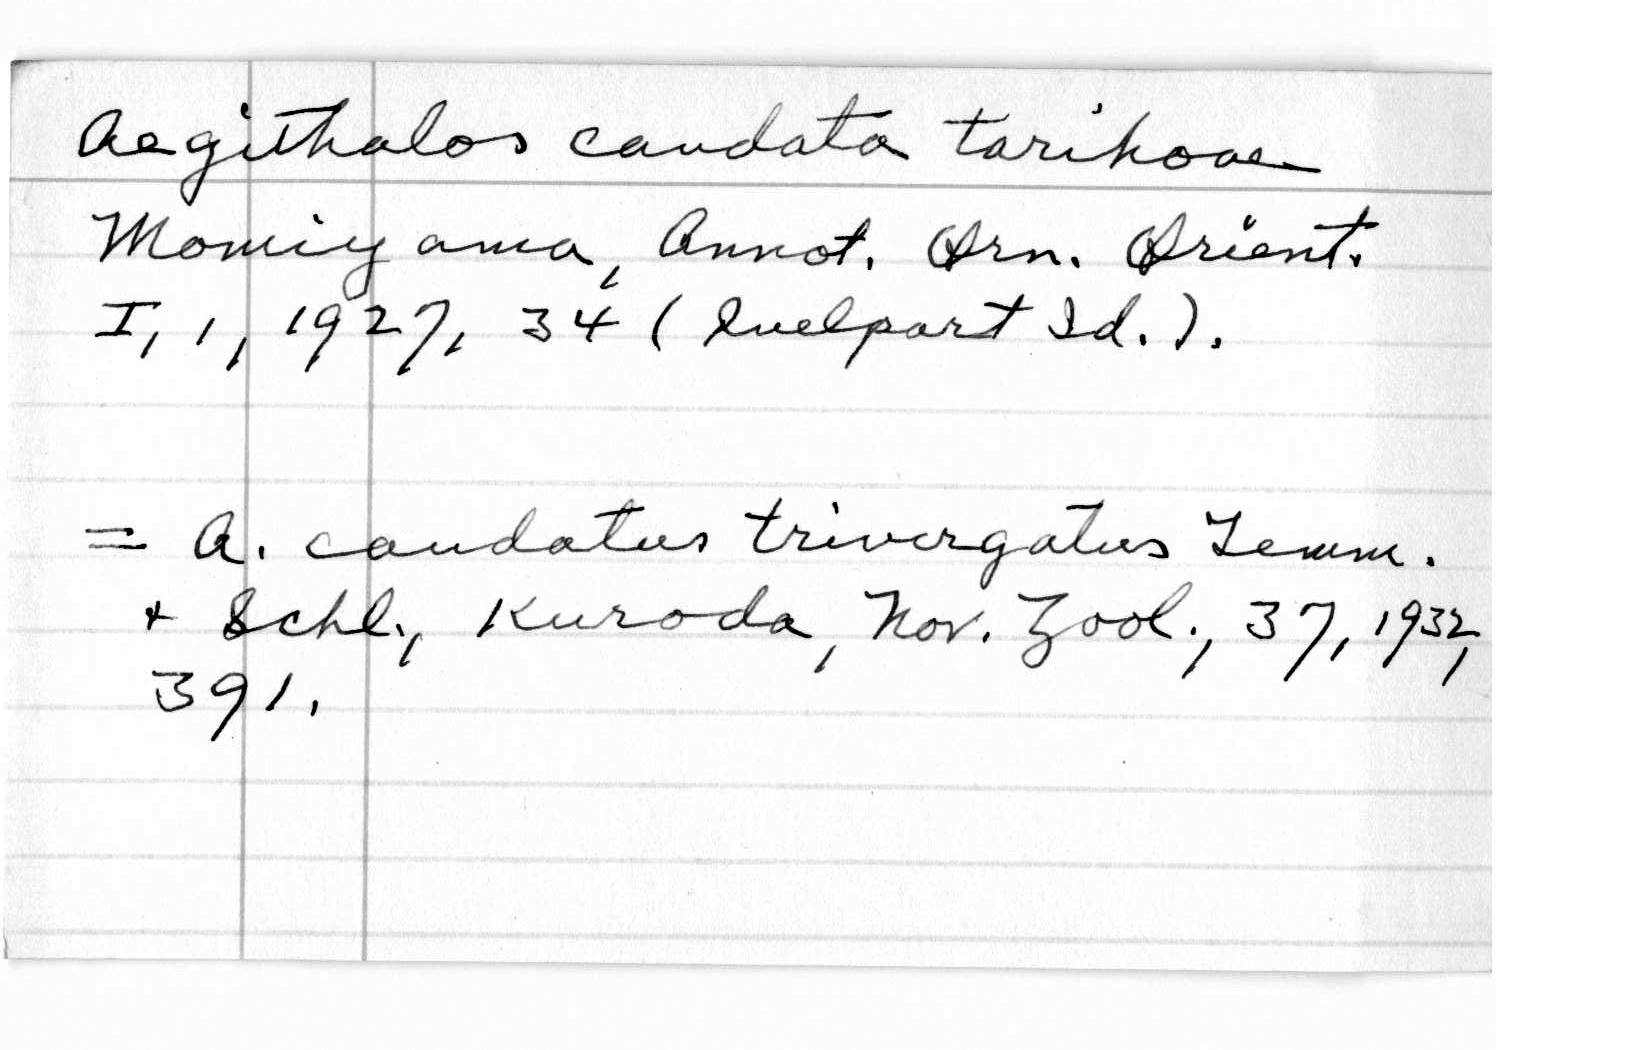 Aegithalos caudata tarihoae
Momiyama, Annot. Orn. Orient.
I, 1, 1927, 34 (Quelpart Id.).
= A. caudatus trivirgatus Temm.
+ Schl., Kuroda, Nov. Zool., 37, 1932,
391.